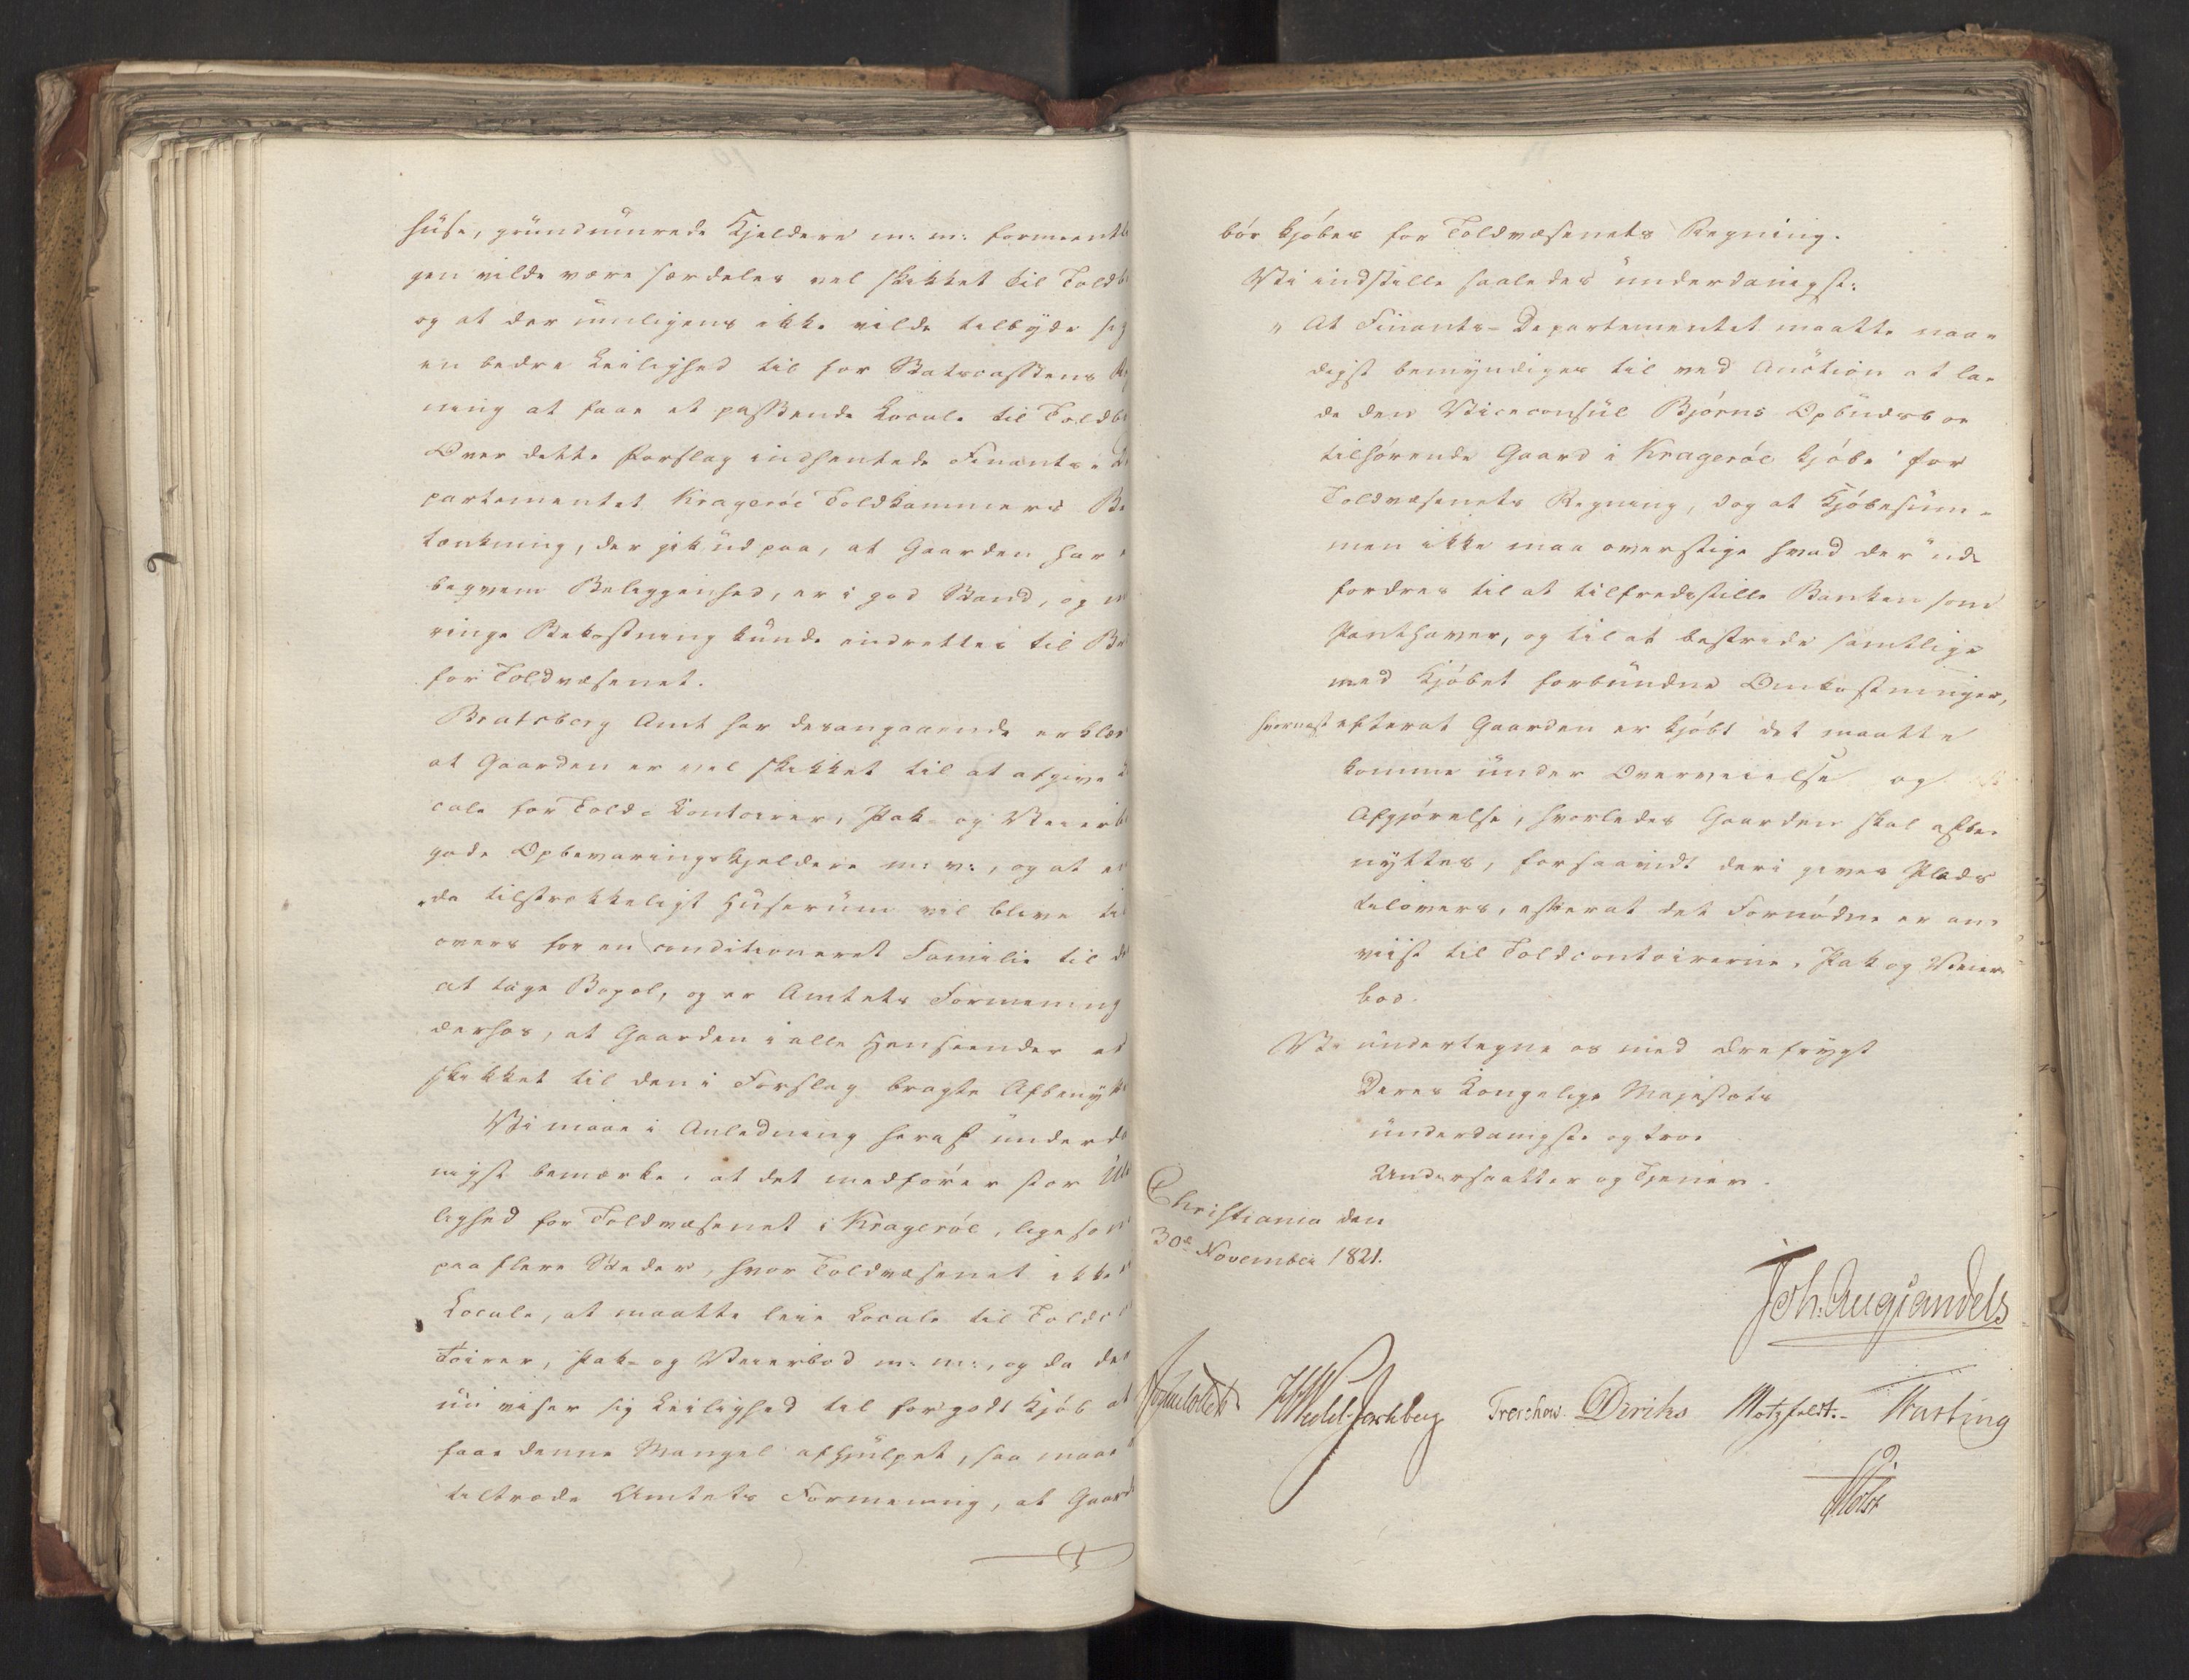 huse, grundmurede Kjeldere m: m: formeentl
gen vilde være særdeles vel skikket til Toldb
og at der muligens ikke vilde tilbyde sig
en bedre Leilighed til for Statscassens Re
ning at faae et passende Locale til Toldb
Over dette Forslag indhentede Finants-De
partementet Kragerøe Toldkammers Be
tænkning, der gik ud paa, at Gaarden har
beqvem Beliggenhed, er i god Stand, og m
ringe Bekostning kunde indrettes til Br
for Toldvæsenet.
Bratsberg Amt har desangaaende erklær
at Gaarden er vel skikket til at afgive
cale for Told-Contoirer, Pak- og Veierb
gode Opbevaringskjeldere m: v:, og at en
da tilstrækkeligt Huserum vil blive til
overs for en conditioneret Familie til der
at tage Bopæl, og er Amtets Formening
derhos, at Gaarden i alle Henseender er
skikket til den i Forslag bragte Afbenytt
Vi maae i Anledning heraf underda
nigst bemærke, at det medfører stor Ule
lighed for Toldvæsenet i Kragerøe, ligesom
paa flere Steder, hvor Toldvæsenet ikke
Locale, at maatte leie Locale til Toldco
toirer, Pak- og Veierbod m: m:, og da der
nu viser sig Leilighed til for godt Kjøb at
faae denne Mangel afhjulpet, saa maae
tiltræde Amtets Formening, at Gaard
bør kjøbes for Toldvæsenets Regning.
Vi indstille saaledes underdanigst:
" At Finants-Departementet maatte naa-
digst bemyndiges til ved Auction at la-
de den Viceconsul Bjørns Opbudsboe
tilhørende Gaard i Kragerøe kjøbe for
Toldvæsenets Regning, dog at Kjøbesum-
men ikke maa overstige hvad der ud-
fordres til at tilfredsstille Banken som
Panthaver, og til at bestride samtlige
med Kjøbet forbundne Omkostninger,
hvornæst efterat Gaarden er kjøbt det maatte
komme under Overveielse og
Afgjørelse, hvorledes Gaarden skal afbe-
nyttes, forsaavidt deri gives Plads
tilovers, efterat det Fornødne er an-
viist til Toldcontoirerne, Pak og Veier-
bod.
Vi undertegne os med Ærefrygt
Deres Kongelige Majestæts
underdanigste og troe
Undersaatter og Tjener.
Christiania den
30te November 1821.
Joh. Aug Sandels
Sommerhielm HWedel Jarlsberg Treschow Diriks Motzfeldt. Fasting
Holst